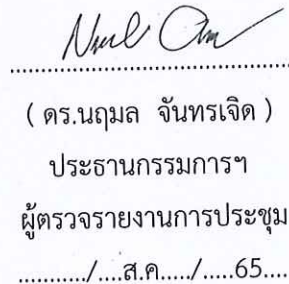 ( ดร.นฤมล จันทรเจิด )
ประธานกรรมการฯ
ผู้ตรวจรายงานการประชุม
.........../....ส.ค...../.....65....